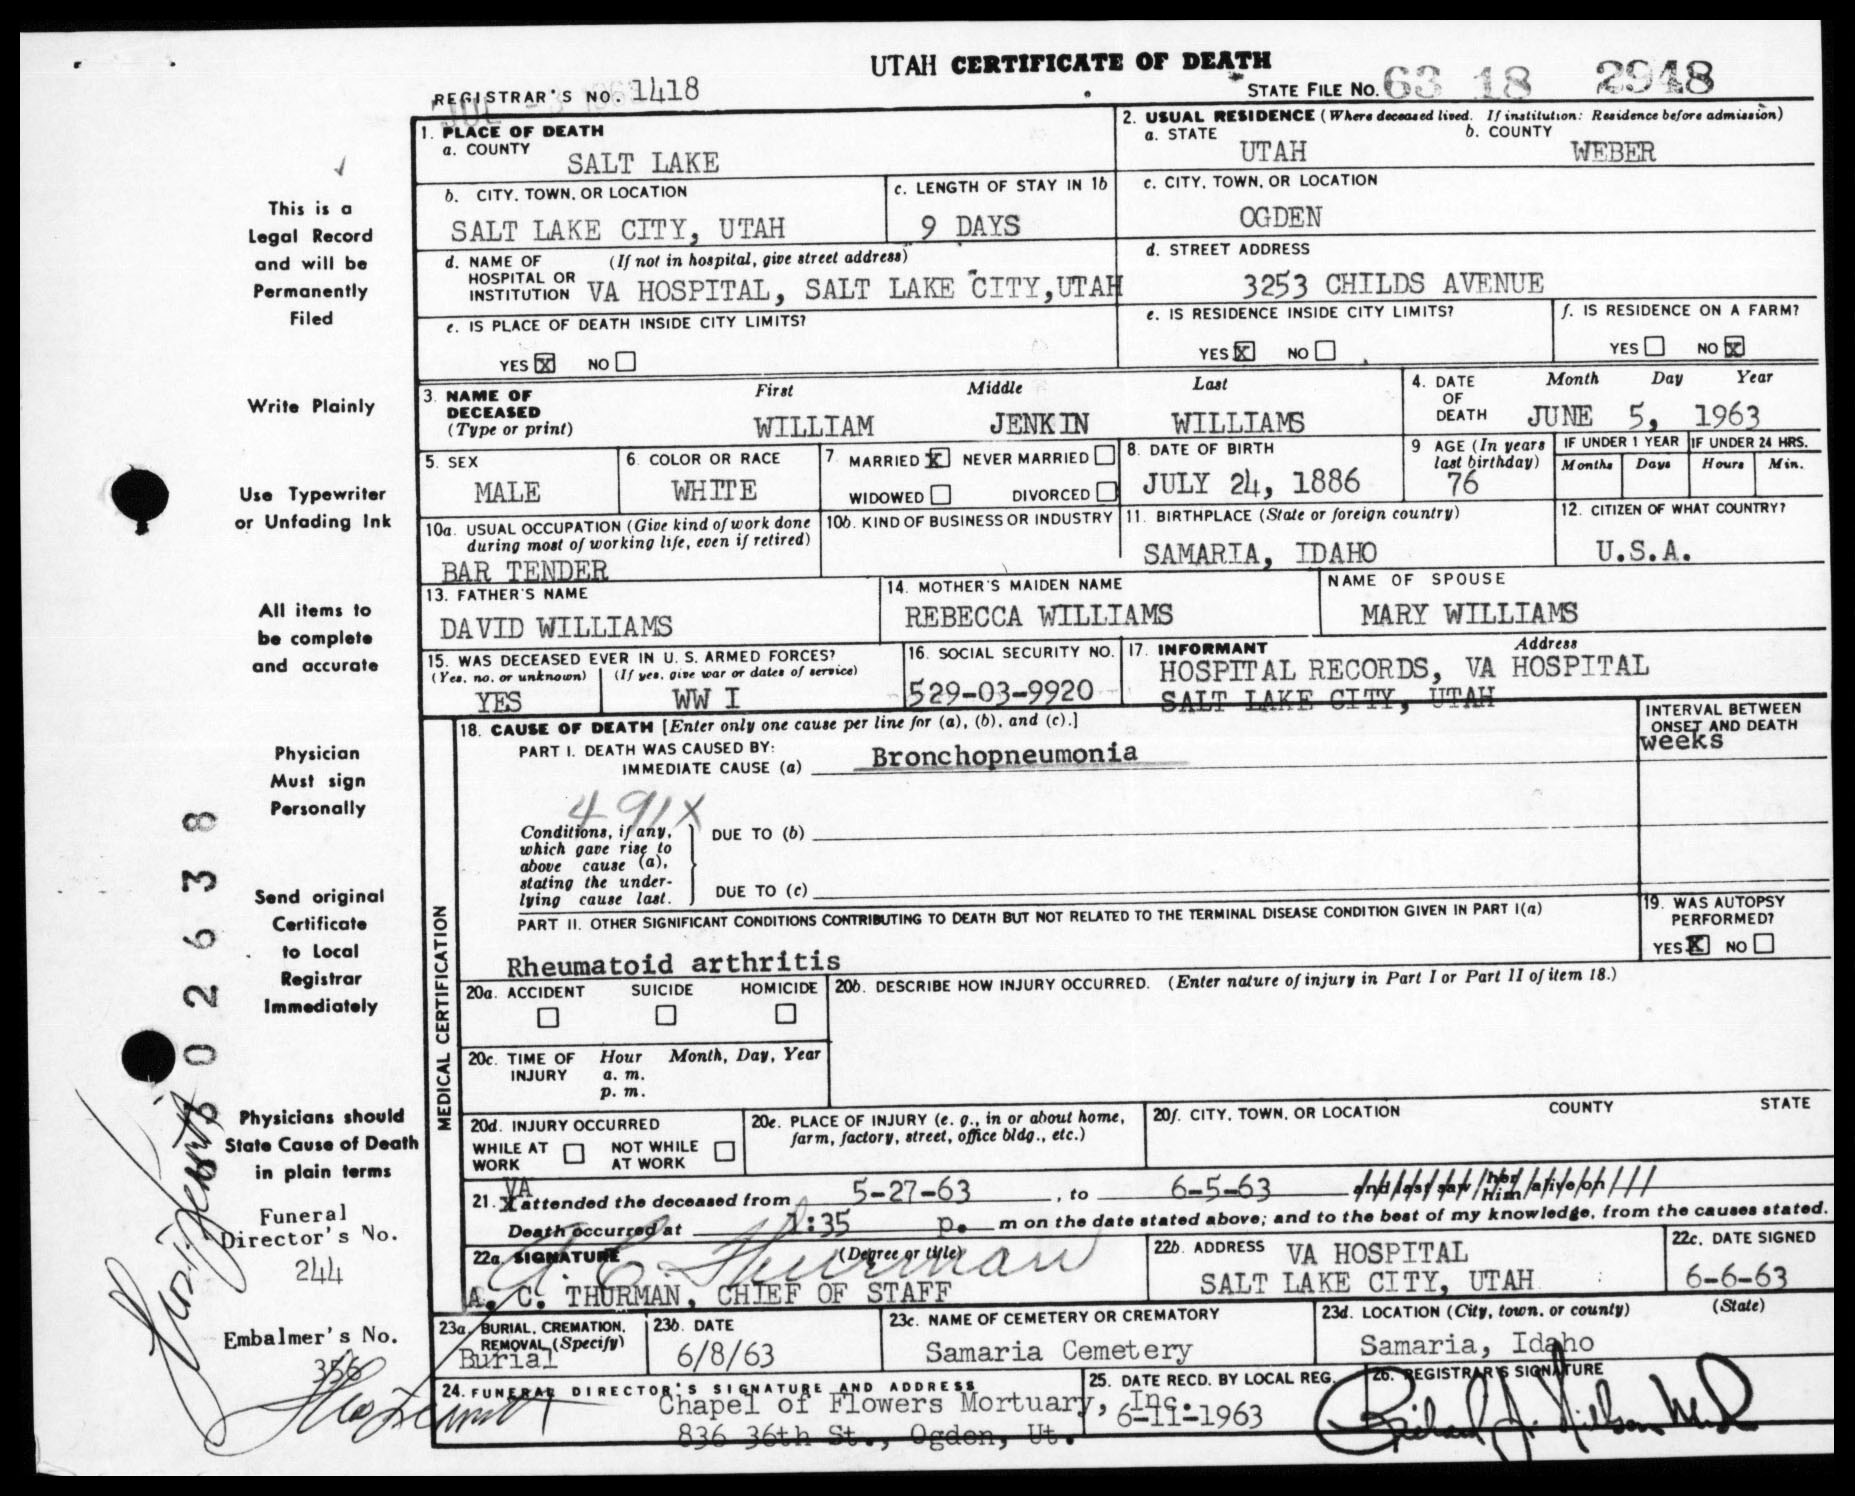 UTAH CERTIFICATE OF DEATH
REGISTRAR'S NO. 1418
STATE FILE NO. 63 18 2948
1. PLACE OF DEATH
a. COUNTY
SALT LAKE
2. USUAL RESIDENCE (Where deceased lived. If institution: Residence before admission)
a. STATE b. COUNTY
UTAH WEBER
b. CITY, TOWN, OR LOCATION
SALT LAKE CITY, UTAH
c. LENGTH OF STAY IN 1b
9 DAYS
c. CITY, TOWN, OR LOCATION
OGDEN
d. NAME OF (If not in hospital, give street address)
HOSPITAL OR
INSTITUTION VA HOSPITAL, SALT LAKE CITY, UTAH
d. STREET ADDRESS
3253 CHILDS AVENUE
e. IS PLACE OF DEATH INSIDE CITY LIMITS?
YES X NO
e. IS RESIDENCE INSIDE CITY LIMITS?
YES X NO
f. IS RESIDENCE ON A FARM?
YES NO X
3. NAME OF
DECEASED
(Type or print)
First Middle Last
WILLIAM JENKIN WILLIAMS
4. DATE
OF
DEATH
Month Day Year
JUNE 5, 1963
5. SEX
MALE
6. COLOR OR RACE
WHITE
7. MARRIED X NEVER MARRIED
WIDOWED DIVORCED
8. DATE OF BIRTH
JULY 24, 1886
9 AGE (In years
last birthday)
76
IF UNDER 1 YEAR
Months Days
IF UNDER 24 HRS.
Hours Min.
10a. USUAL OCCUPATION (Give kind of work done
during most of working life, even if retired)
BAR TENDER
10b. KIND OF BUSINESS OR INDUSTRY
11. BIRTHPLACE (State or foreign country)
SAMARIA, IDAHO
12. CITIZEN OF WHAT COUNTRY?
U.S.A.
13. FATHER'S NAME
DAVID WILLIAMS
14. MOTHER'S MAIDEN NAME
REBECCA WILLIAMS
NAME OF SPOUSE
MARY WILLIAMS
15. WAS DECEASED EVER IN U. S. ARMED FORCES?
(Yes, no, or unknown) (If yes, give war or dates of service)
YES WW I
16. SOCIAL SECURITY NO.
529-03-9920
17. INFORMANT Address
HOSPITAL RECORDS, VA HOSPITAL
SALT LAKE CITY, UTAH
18. CAUSE OF DEATH [Enter only one cause per line for (a), (b), and (c).]
PART I. DEATH WAS CAUSED BY:
IMMEDIATE CAUSE (a) Bronchopneumonia
INTERVAL BETWEEN
ONSET AND DEATH
weeks
491X
Conditions, if any,
which gave rise to
above cause (a),
stating the under-
lying cause last.
DUE TO (b)
DUE TO (c)
PART II. OTHER SIGNIFICANT CONDITIONS CONTRIBUTING TO DEATH BUT NOT RELATED TO THE TERMINAL DISEASE CONDITION GIVEN IN PART I(a)
Rheumatoid arthritis
19. WAS AUTOPSY
PERFORMED?
YES X NO
MEDICAL CERTIFICATION
20a. ACCIDENT SUICIDE HOMICIDE
20b. DESCRIBE HOW INJURY OCCURRED. (Enter nature of injury in Part I or Part II of item 18.)
20c. TIME OF Hour Month, Day, Year
INJURY a. m.
p. m.
20d. INJURY OCCURRED
WHILE AT NOT WHILE
WORK AT WORK
20e. PLACE OF INJURY (e. g., in or about home,
farm, factory, street, office bldg., etc.)
20f. CITY, TOWN, OR LOCATION COUNTY STATE
VA
21. X attended the deceased from 5-27-63, to 6-5-63 and last saw her him alive on
Death occurred at 1:35 p. m on the date stated above; and to the best of my knowledge, from the causes stated.
22a. SIGNATURE (Degree or title)
A. C. Thurman
A. C. THURMAN, CHIEF OF STAFF
22b. ADDRESS VA HOSPITAL
SALT LAKE CITY, UTAH
22c. DATE SIGNED
6-6-63
23a. BURIAL, CREMATION,
REMOVAL (Specify)
Burial
23b. DATE
6/8/63
23c. NAME OF CEMETERY OR CREMATORY
Samaria Cemetery
23d. LOCATION (City, town, or county) (State)
Samaria, Idaho
24. FUNERAL DIRECTOR'S SIGNATURE AND ADDRESS
Chapel of Flowers Mortuary, Inc.
836 36th St., Ogden, Ut.
25. DATE RECD. BY LOCAL REG.
6-11-1963
26. REGISTRAR'S SIGNATURE
This is a
Legal Record
and will be
Permanently
Filed
Write Plainly
Use Typewriter
or Unfading Ink
All items to
be complete
and accurate
Physician
Must sign
Personally
Send original
Certificate
to Local
Registrar
Immediately
Physicians should
State Cause of Death
in plain terms
Funeral
Director's No.
244
Embalmer's No.
356